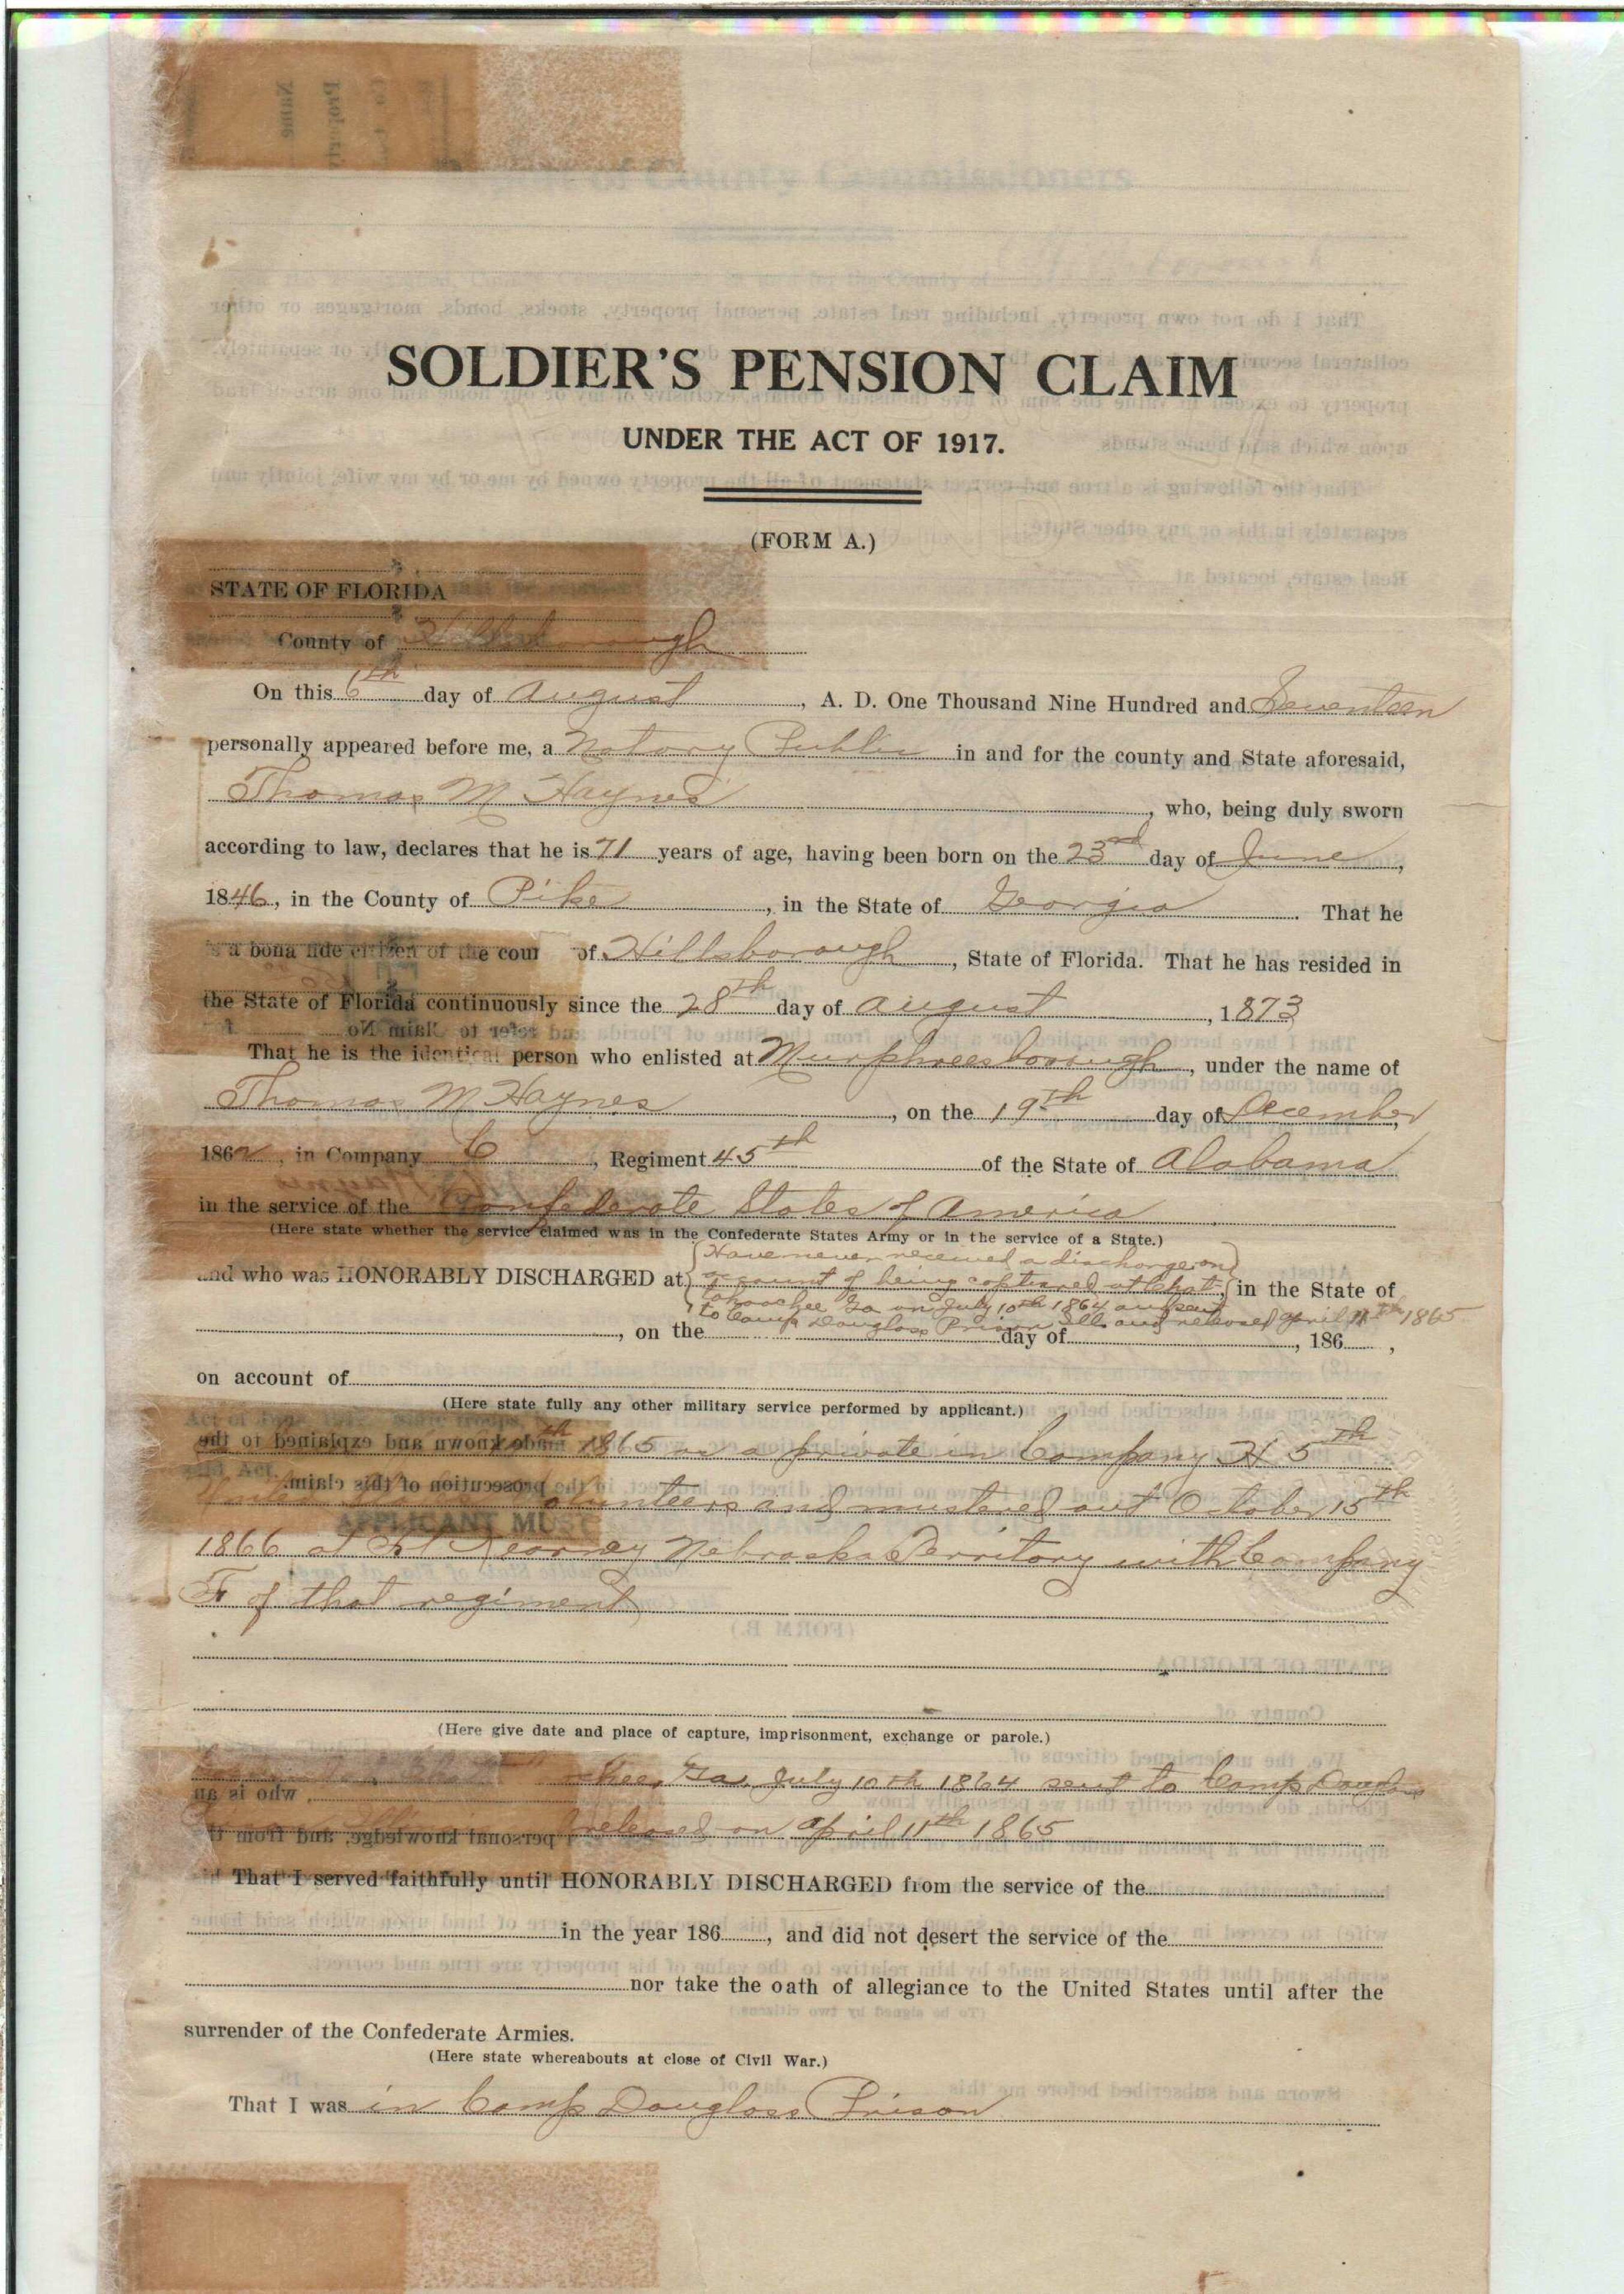 SOLDIER'S PENSION CLAIM
UNDER THE ACT OF 1917.
(FORM A.)
STATE OF FLORIDA
County of Hillsborough
On this 6th day of August, A. D. One Thousand Nine Hundred and Seventeen
personally appeared before me, a Notary Public in and for the county and State aforesaid,
Thomas M Haynes, who, being duly sworn
according to law, declares that he is 71 years of age, having been born on the 23rd day of June,
1846, in the County of Pike, in the State of Georgia. That he
is a bona fide citizen of the coun of Hillsborough, State of Florida. That he has resided in
the State of Florida continuously since the 28th day of August, 1873
That he is the identical person who enlisted at Murphreesborough, under the name of
Thomas M Haynes, on the 19th day of December,
1862, in Company C, Regiment 45th of the State of Alabama
in the service of the Confederate States of America
(Here state whether the service claimed was in the Confederate States Army or in the service of a State.)
Have never received a discharge on
and who was HONORABLY DISCHARGED at account of being captured at Chat, in the State of
tahoochee Ga on July 10th 1864 and sent
to Camp Douglass Prison Ills and released April 11th 1865
, on the day of, 186 ,
on account of
(Here state fully any other military service performed by applicant.)
th 1865 as a private in Company H 5th
Volunteers and mustered out October 15th
1866 at Ft Kearney Nebraska Territory with Company
F of that regiment
(Here give date and place of capture, imprisonment, exchange or parole.)
chee, Ga, July 10th 1864 sent to Camp Douglas
released on April 11th 1865
That I served faithfully until HONORABLY DISCHARGED from the service of the
in the year 186, and did not desert the service of the
nor take the oath of allegiance to the United States until after the
surrender of the Confederate Armies.
(Here state whereabouts at close of Civil War.)
That I was in Camp Douglass Prison